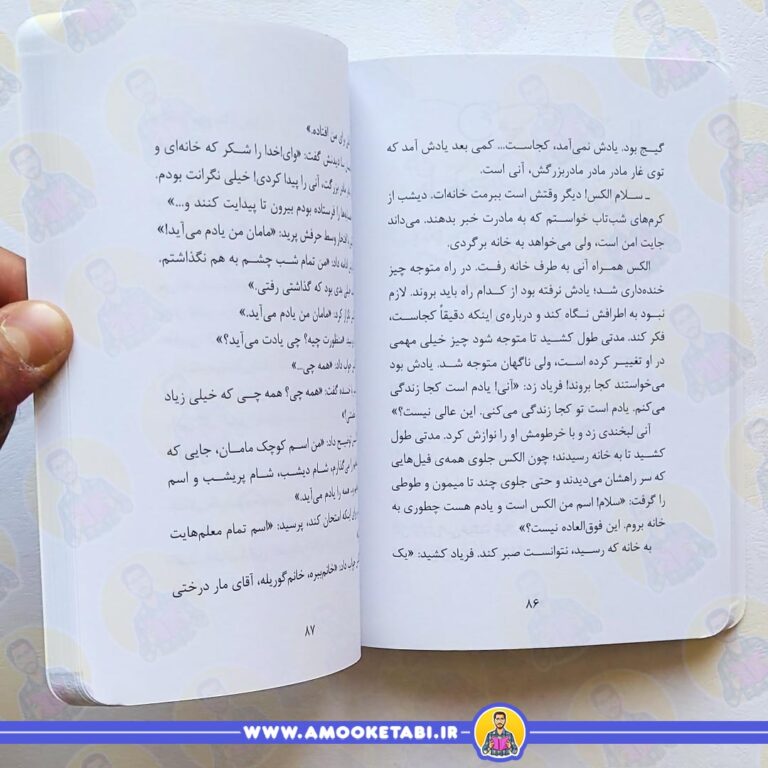 گیج بود. یادش نمی‌آمد، کجاست... کمی بعد یادش آمد که
توی غار مادر مادر مادربزرگش، آنی است.
ـ سلام الکس! دیگر وقتش است ببرمت خانه‌ات. دیشب از
کرم‌های شب‌تاب خواستم که به مادرت خبر بدهند. می‌داند
جایت امن است، ولی می‌خواهد به خانه برگردی.
الکس همراه آنی به طرف خانه رفت. در راه متوجه چیز
خنده‌داری شد؛ یادش نرفته بود از کدام راه باید بروند. لازم
نبود به اطرافش نگاه کند و درباره‌ی اینکه دقیقاً کجاست،
فکر کند. مدتی طول کشید تا متوجه شود چیز خیلی مهمی
در او تغییر کرده است، ولی ناگهان متوجه شد. یادش بود
می‌خواستند کجا بروند! فریاد زد: «آنی! یادم است کجا زندگی
می‌کنم. یادم است تو کجا زندگی می‌کنی. این عالی نیست؟»
آنی لبخندی زد و با خرطومش او را نوازش کرد. مدتی طول
کشید تا به خانه رسیدند؛ چون الکس جلوی همه‌ی فیل‌هایی
که سر راهشان می‌دیدند و حتی جلوی چند تا میمون و طوطی
را گرفت: «سلام! اسم من الکس است و یادم هست چطوری به
خانه بروم. این فوق‌العاده نیست؟»
به خانه که رسید، نتوانست صبر کند. فریاد کشید: «یک
۸۶
افتاده.»
دیدنش گفت: «وای‌اخدا را شکر که خانه‌ای و
بزرگت، آنی را پیدا کردی! خیلی نگرانت بودم.
را فرستاده بودم بیرون تا پیدایت کنند و...»
وسط حرفش پرید: «مامان من یادم می‌آید!»
ادامه داد: «من تمام شب چشم به هم نگذاشتم.
بدی بود که گذاشتی رفتی.»
کرد: «مامان من یادم می‌آید.»
«منظورت چیه؟ چی یادت می‌آید؟»
داد: «همه چی...
گفت: «همه چی؟ همه چی که خیلی زیاد
توضیح داد: «من اسم کوچک مامان، جایی که
شام دیشب، شام پریشب و اسم
همه را یادم می‌آید.»
اینکه امتحان کند، پرسید: «اسم تمام معلم‌هایت
جواب داد: «خانم‌ببره، خانم‌گوریله، آقای مار درختی
۸۷
WWW.AMOOKETABI.IR